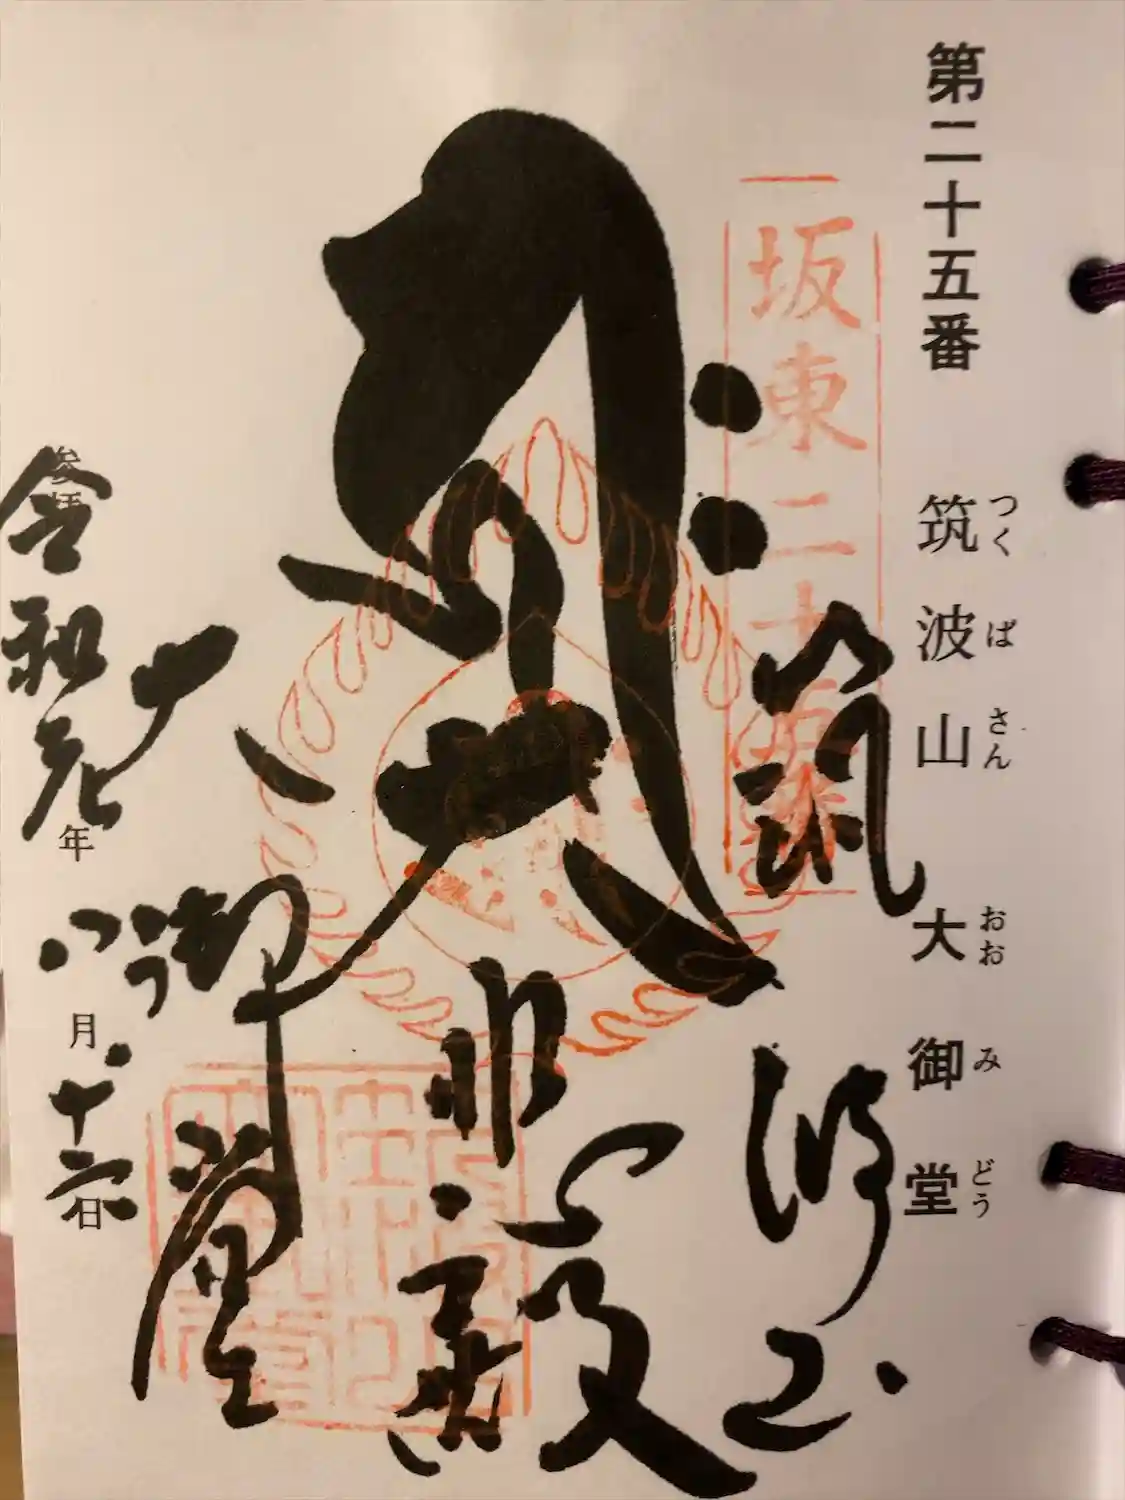 第二十五番 筑波山 大御堂
つくばさん おおみどう
坂東二十五番
筑波山
大悲殿
大御堂
令和元年八月十二日